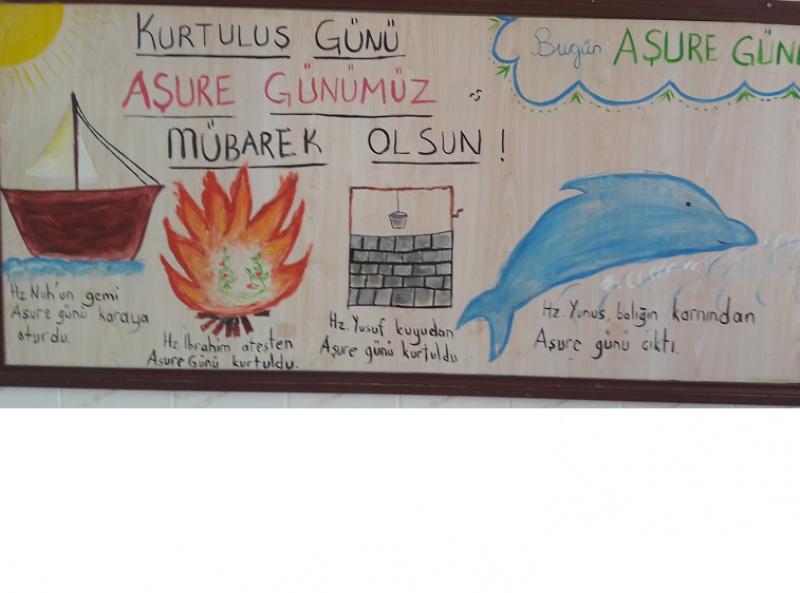 KURTULUŞ GÜNÜ
AŞURE GÜNÜMÜZ
MÜBAREK OLSUN !
Bugün AŞURE GÜN
Hz Nuh'un gemi
Aşure günü karaya
oturdu.
Hz İbrahim ateşten
Aşure Günü kurtuldu.
Hz. Yusuf kuyudan
Aşure günü kurtuldu
Hz. Yunus, balığın karnından
Aşure günü çıktı.